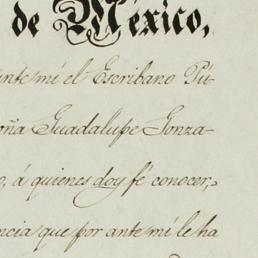 de México,
ante mí el Escribano Pú-
oña Guadalupe Gonza-
o, á quienes doy fé conocer,
ncia que por ante mi le ha